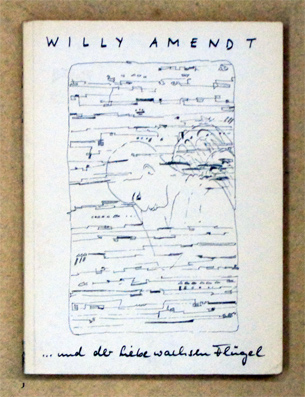 WILLY AMENDT
... und der Liebe wachsen Flügel